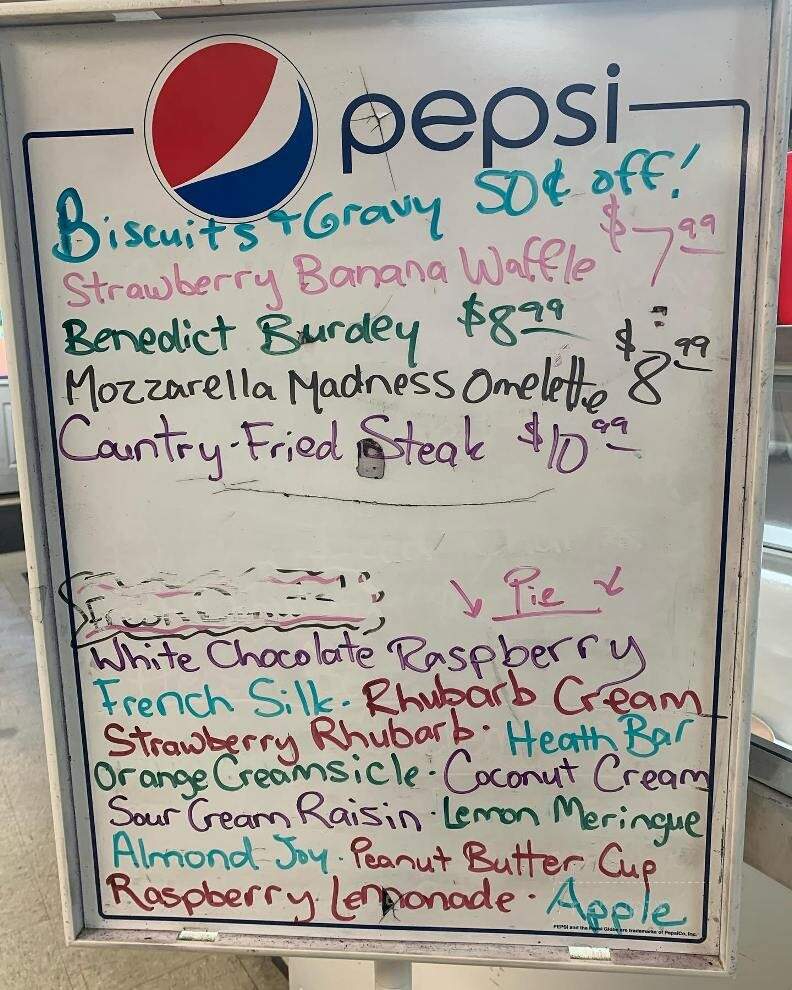 pepsi
Biscuits + Gravy 50¢ off!
Strawberry Banana Waffle $7.99
Benedict Burdey $8.99
Mozzarella Madness Omelette $8.99
Country-Fried Steak $10.99
↘ Pie ↙
White Chocolate Raspberry
French Silk · Rhubarb Cream
Strawberry Rhubarb · Heath Bar
Orange Creamsicle · Coconut Cream
Sour Cream Raisin · Lemon Meringue
Almond Joy · Peanut Butter Cup
Raspberry Lemonade · Apple
PEPSI and the Pepsi Globe are trademarks of PepsiCo, Inc.